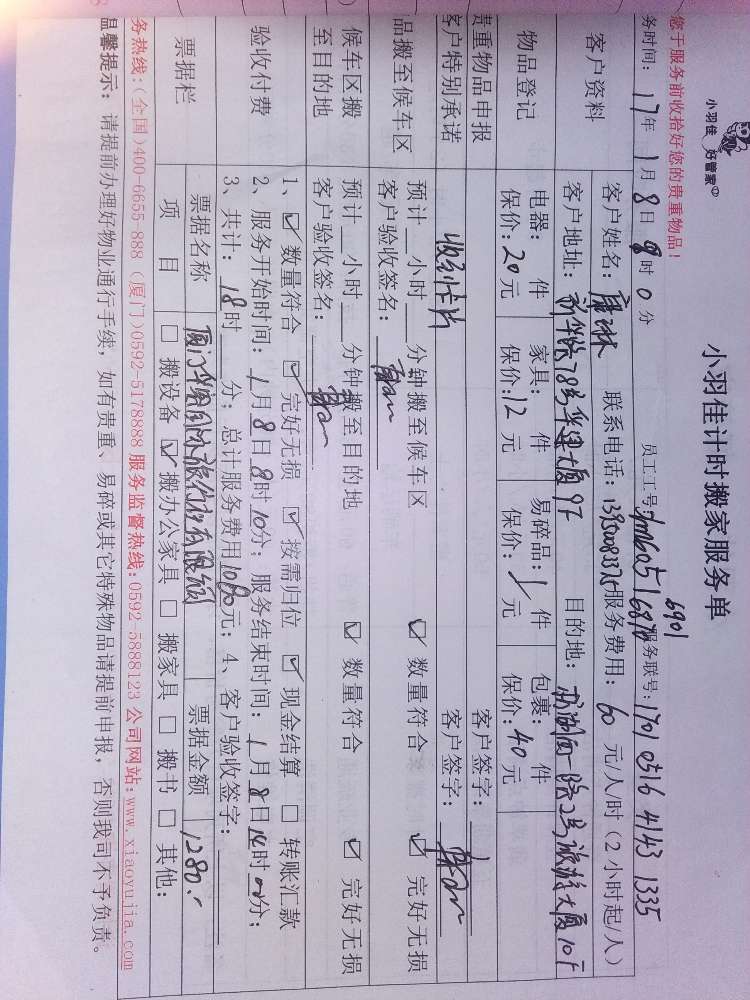 小羽佳 好管家
小羽佳计时搬家服务单
您于服务前收拾好您的贵重物品！
务时间： 17年 1月 8日 8时 0分 员工工号： 6901 服务联号：1701 0516 4143 1335
客户资料 客户姓名： 联系电话： 服务费用： 60 元/人/时（2小时起/人）
客户地址： 新华路78号华建大厦9F 目的地： 路2号旅游大厦10F
物品登记 电器： 件 家具： 件 易碎品： 件 包裹： 件
保价：20元 保价：12元 保价： 元 保价：40元
贵重物品申报 客户签字：
客户特别承诺 收到卡片 客户签字：
品搬至候车区 预计 小时 分钟搬至候车区 ☑ 数量符合 ☑ 完好无损
客户验收签名：
候车区搬 预计 小时 分钟搬至目的地 ☑ 数量符合 ☑ 完好无损
至目的地 客户验收签名：
验收付费 1、☑ 数量符合 ☑ 完好无损 ☑ 按需归位 ☑ 现金结算 □ 转账汇款
2、服务开始时间：1月8日8时10分；服务结束时间：1月8日14时00分；
3、共计：18时 分；总计服务费用1080元；4、客户验收签字：
票据栏 票据名称 厦门 国际旅行社有限公司 票据金额 1280.
项 目 □ 搬设备 ☑ 搬办公家具 □ 搬家具 □ 搬书 □ 其他：
务热线：(全国)400-6655-888 (厦门)0592-5178888 服务监督热线：0592-5888123 公司网站：www.xiaoyujia.com
温馨提示：请提前办理好物业通行手续，如有贵重、易碎或其它特殊物品请提前申报，否则我司不予负责。